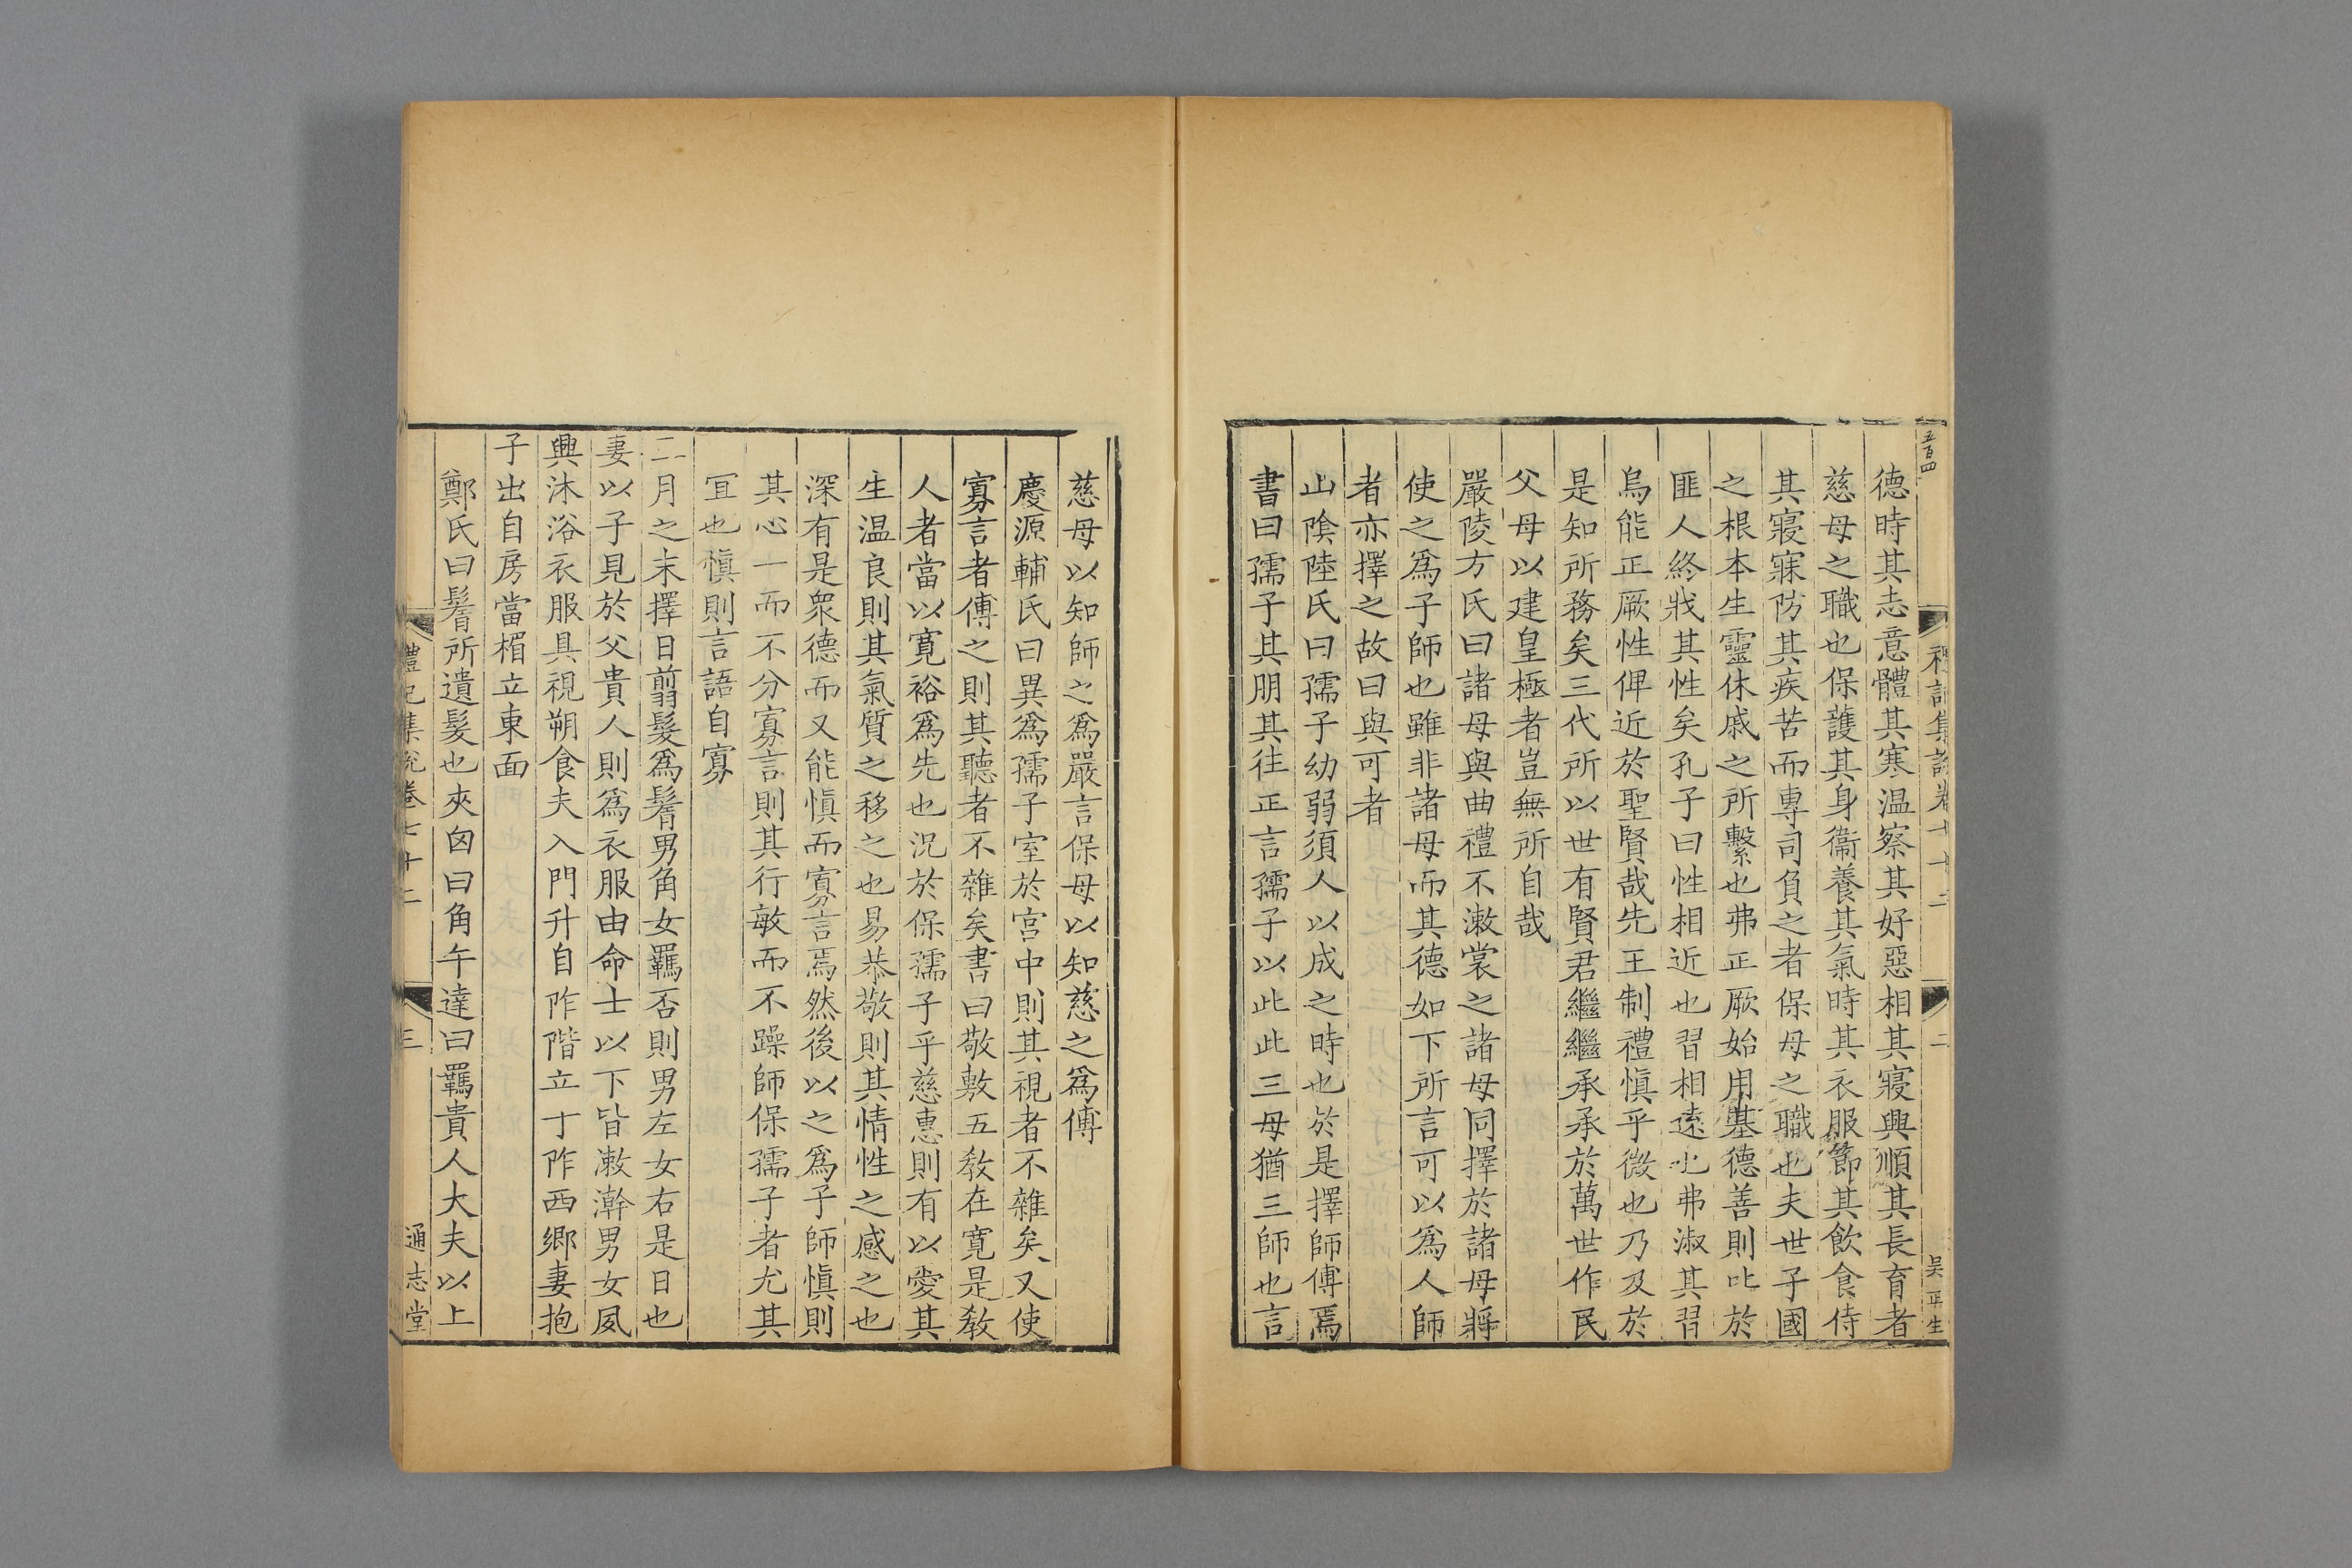 五百四
禮記集說卷七十二
二
吴正生
德時其志意體其寒温察其好惡相其寢興順其長育者
慈母之職也保護其身衞養其氣時其衣服節其飲食侍
其寢寐防其疾苦而專司負之者保母之職也夫世子國
之根本生靈休戚之所繫也弗正厥始用基德善則比於
匪人終戕其性矣孔子曰性相近也習相遠也弗淑其習
烏能正厥性俾近於聖賢哉先王制禮慎乎微也乃及於
是知所務矣三代所以世有賢君繼繼承承於萬世作民
父母以建皇極者豈無所自哉
嚴陵方氏曰諸母與曲禮不漱裳之諸母同擇於諸母將
使之爲子師也雖非諸母而其德如下所言可以爲人師
者亦擇之故曰與可者
山隂陸氏曰孺子幼弱須人以成之時也於是擇師傅焉
書曰孺子其朋其往正言孺子以此此三母猶三師也言
慈母以知師之爲嚴言保母以知慈之爲傅
慶源輔氏曰異爲孺子室於宫中則其視者不雜矣又使
寡言者傅之則其聽者不雜矣書曰敬敷五教在寛是教
人者當以寛裕爲先也況於保孺子乎慈惠則有以愛其
生温良則其氣質之移之也易恭敬則其情性之感之也
深有是衆德而又能慎而寡言焉然後以之爲子師慎則
其心一而不分寡言則其行敏而不躁師保孺子者尤其
冝也慎則言語自寡
二月之末擇日翦髮爲鬌男角女羈否則男左女右是日也
妻以子見於父貴人則爲衣服由命士以下皆漱澣男女夙
興沐浴衣服具視朔食夫入門升自阼階立于阼西鄉妻抱
子出自房當楣立東面
鄭氏曰鬌所遺髮也夾囟曰角午達曰羈貴人大夫以上
禮記集説卷七十二
三
通志堂